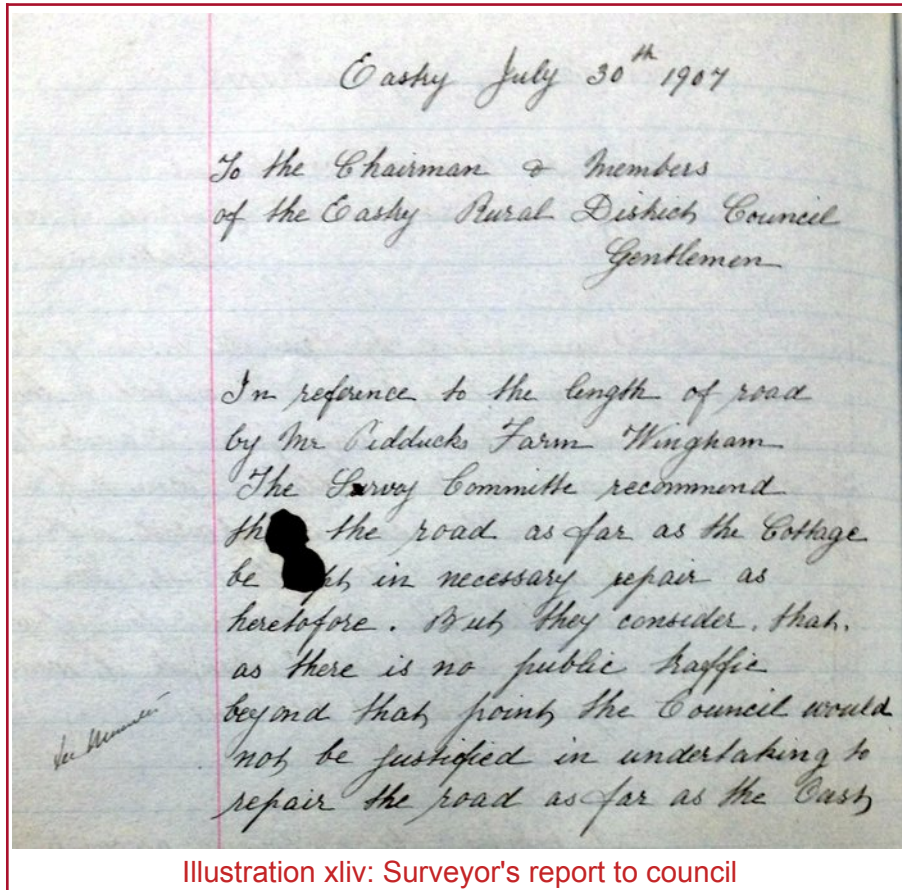 Eastry July 30th 1907
To the Chairman & Members
of the Eastry Rural District Council
Gentlemen
In reference to the length of road
by Mr Pidducks Farm Wingham
The Survey Committe recommend
the road as far as the Cottage
be in necessary repair as
heretofore. But they consider. that.
as there is no public traffic
beyond that point the Council would
not be justified in undertaking to
repair the road as far as the Oast
See Minute
Illustration xliv: Surveyor's report to council